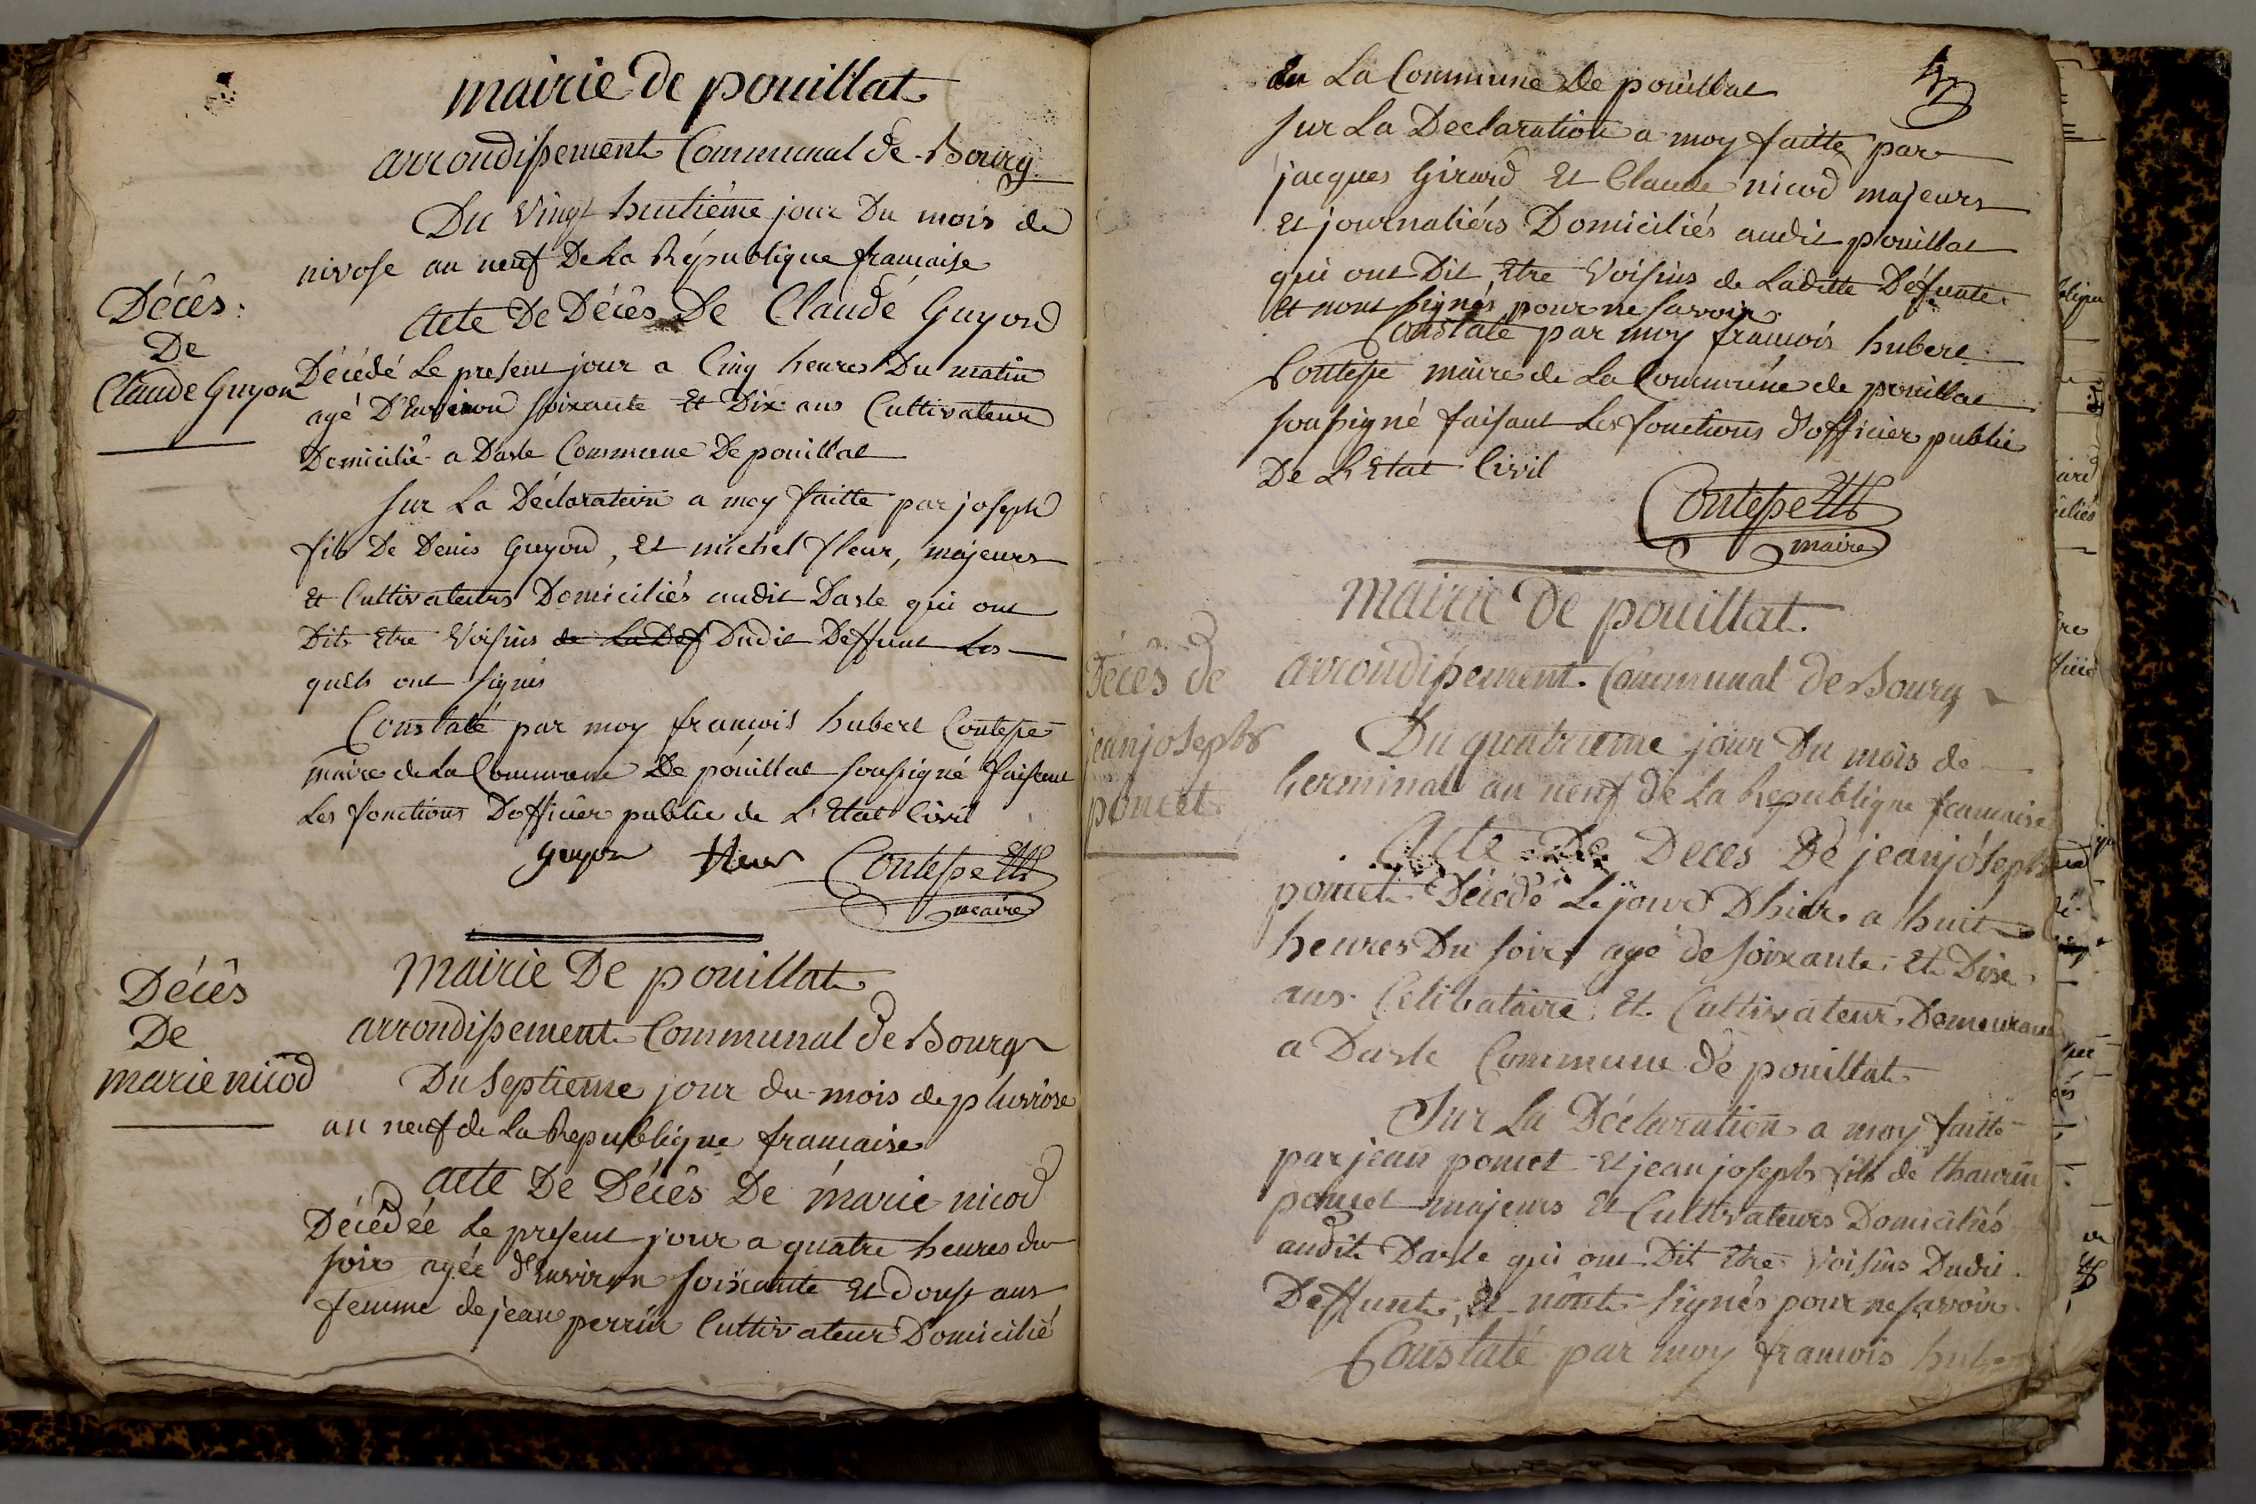 mairie de pouillat
arrondissement Communal de Bourg
Du vingt huitiéme jour Du mois de
nivose an neuf De La République francaise
Décês
De
Claude Guyon
Acte De Décês De Claude Guyond
Décédé Le present jour a Cinq heures Du matin
agé D'Environd soixante Et Dix ans Cultivateur
Domicilié a Dasle Commune De pouillat
Sur La Déclaration a moy faitte par joseph
fils De Denis Guyond, Et michel fleur, majeurs
Et Cultivateurs Domiciliés audit Dasle qui ont
Dits Etre Voisins de La Def Dudit Deffunt Les
quels ont signés
Constaté par moy francois hubert Contesse
maire de La Commune De pouillat soussigné faisant
Les fonctions Dofficier public de L'Etat Civil
guyon fleur Contesse
maire
Décês
De
marie nicod
mairie De pouillat
arrondissement Communal de Bourg
Du septieme jour du mois de pluviose
an neuf de La Republique francaise
Acte De Décês De marie nicod
Décédée Le present jour a quatre heures du
soir agée d'Environ soixante Et douse ans
femme de jean perrin Cultivateur Domicilié
En La Commune De pouillat
sur La Declaration a moy faitte par
jacques Girard Et Claude nicod majeurs
Et journaliérs Domiciliés audit pouillat
qui ont Dit Etre Voisins de Laditte Défunte
Et nont signés pour ne savoir
Constaté par moy francois hubert
Contesse maire de La Commune de pouillat
soussigné faisant Les fonctions d'officier public
De L'Etat Civil
Contesse
maire
Décês de
jean joseph
poncet
mairie De pouillat
arrondissement Communal de Bourg
Du quatrieme jour Du mois de
Germinal an neuf de La Republique francaise
Acte De Decês De jean jóseph
poncet Décédé Le jour D'hier a huit
heures Du soir agé de soixante Et Dix
ans Celibataire Et Cultivateur Demeurant
a Dasle Commune de pouillat
Sur La Déclaration a moy faitte
par jean poncet Et jean joseph fils de thaurin
poncet majeurs Et Cultivateurs Domiciliés
audit Dasle qui ont Dit Etre Voisins Dudit
Deffunt, Et n'ont signés pour ne savoir
Constaté par moy francois hub